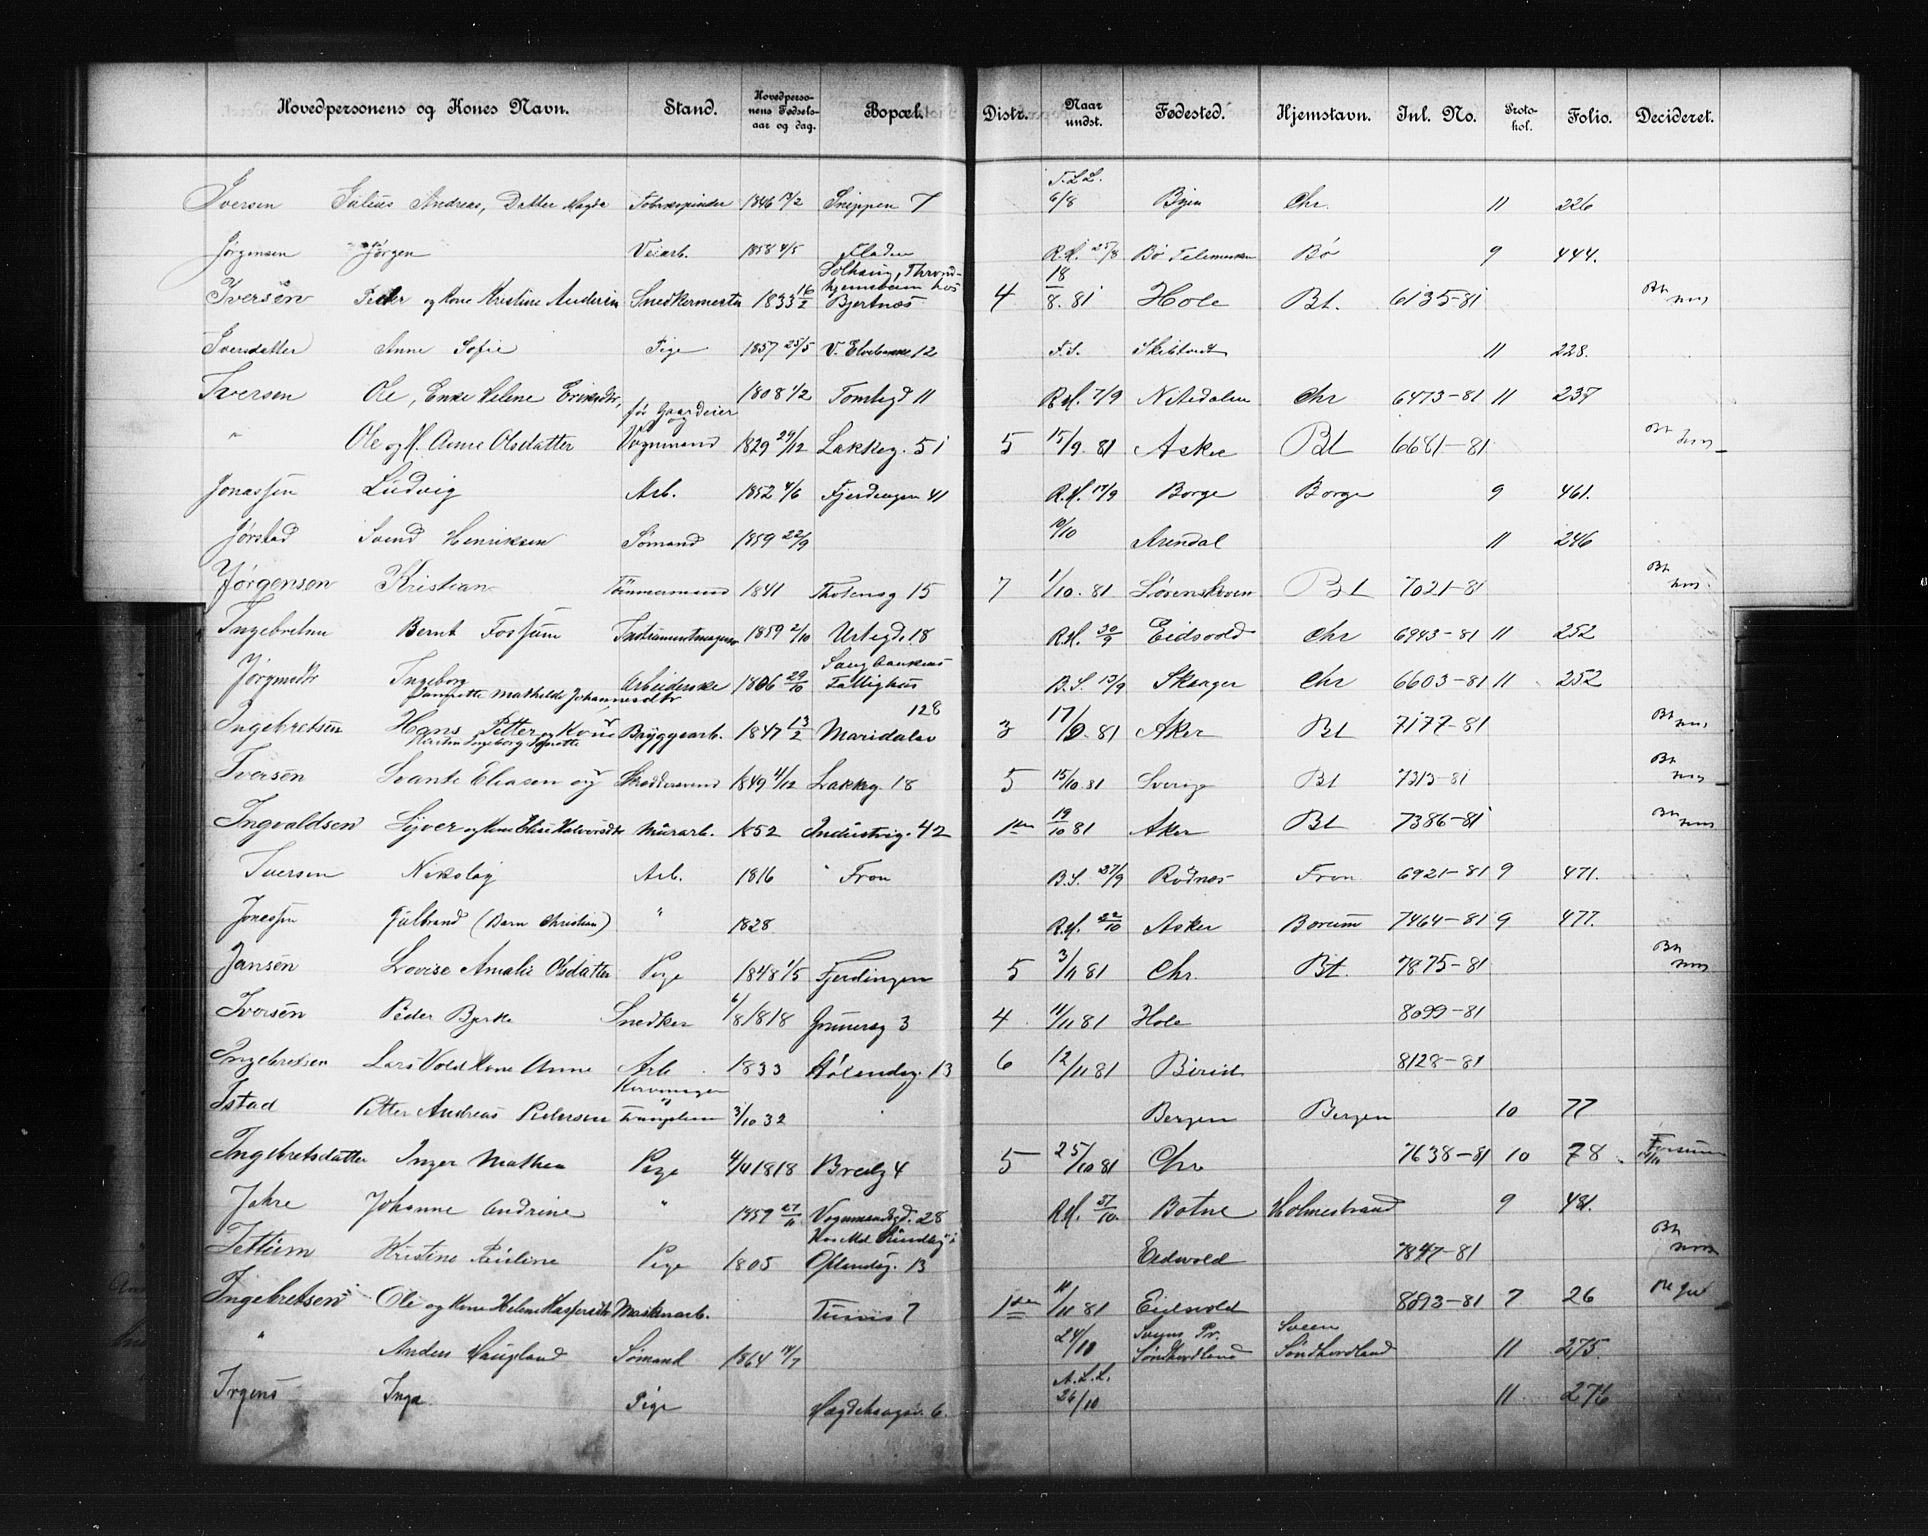 Hovedpersonens og Kones Navn. Stand. Hovedpersonens Fødselsaar og dag. Bopæl. Distr. Naar undst. Fødested. Hjemstavn. Inl. No. Protokol. Folio. Decideret.
Iversen Julius Andreas, Datter Magda 1846 Snippen 7 F.L.L. 6/8 Chr. 11 226
Jørgensen Jørgen Veiarb. 1858 4/5 Fladen R.H. 25/8 Bø Telemarken Bø 9 444.
Iversen Peder og Kone Kristine Andersen Snedkermester 1833 16/2 Solhaug, Bjertnæs 4 18/8. 81 Hole Bt. 6135-81
Iversdatter Anne Sofie Pige 1857 25/5 V. Elvebakke 12 F.S. 11 228.
Iversen Ole, Enke Helene 1808 1/2 Tomtegd 11 R.H. 7/9 Nitedalen Chr 6473-81 11 237
" Ole og H. Anne Olsdatter før Gaardeier og Vognmand 1829 29/12 Lakkeg. 51 5 15/9. 81 Asker Bt 6681-81
Jonassen Ludvig Arb. 1852 4/6 Fjerdingen 41 R.H. 17/9 Borge Borge 9 461.
Jørstad Svend Henriksen Sømand 1859 22/9 19/10 Arendal 11 246
Jørgensen Kristian Tømmermand 1841 Thotensg 15 7 1/10. 81 Sørenskoven Bt 7021-81
Ingebretsen Bernt Fossum Instrumentmager 1859 2/10 Urtegd. 18 R.H. 30/9 Eidsvold Chr 6943-81 11 252
Jørgensdtr Ingeborg Arbeiderske 1806 29/10 Sang Fattighus B.S. 13/9 Skanger Chr 6603-81 11 252
Mathilde Johannesdtr
Ingebretsen Hans Petter og Kone Bryggearb. 1847 13/2 Maridalsv 128 3 17/9. 81 Aker Bt 7177-81
Kirstin Ingeborg
Iversen Svante Eliasen og Skræddersvend 1849 4/12 Lakkeg. 18 5 15/10. 81 Sverige Bt 7313-81
Ingvaldsen Syver og Kone Elise Halvorsdtr Murarb. 1852 Industrig. 42 1ste 19/10 81 Aker Bt 7386-81
Iversen Nikolay Arb. 1816 Fron B.S. 27/9 Rødnes Fron 6921-81 9 471.
Jonassen Gulbrand (Barn Christian) " 1828 R.H. 22/10 Asker Borum 7464-81 9 477.
Jansen Lovise Amalie Olsdatter Pige 1848 1/5 Fjerdingen 5 3/11 81 Chr. Bt. 7875-81
Iversen Peder Bjerke Snedker 6/8 1818 Grunersg 3 4 11/11 81 Hole 8099-81
Ingebretsen Lars Vold Kone Anne Arb 1833 Hølendsg. 13 6 12/11 81 Birid 8128-81
Istad Petter Andreas Pedersen Kurvmager 3/10 32 Bergen Bergen 10 77
Ingebretsdatter Inger Mathea Pige 4/11 1818 Bredg 4 5 25/10 81 Chr 7638-81 10 78
Jahre Johanne Andrine " 1859 27/11 Vognmandsgd. 28 R.H. Botne Holmestrand 9 481.
Jettum Kristine Pauline Pige 1805 Oplandsg. 13 Eidsvold 7847-81
Ingebretsen Ole og Kone Helene Kaspersdtr Maskinarb. 7 1ste 11/11 81 Eidsvold 8093-81 7 26
" Anders Haugland Sømand 1864 14/7 24/10 Sveens Pr. Søndhordland Sveen Søndhordland 11 275.
Irgens Inga Pige Hegdehaugsv. 6. A.L.L. 26/10 11 276